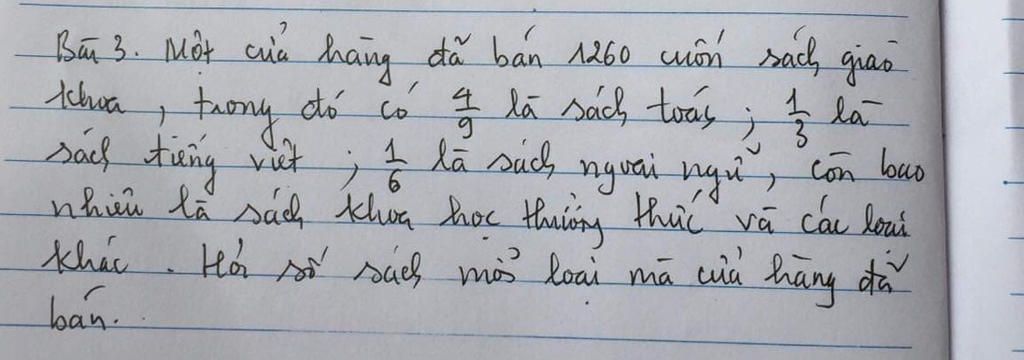 Bài 3. Một cửa hàng đã bán 1260 cuốn sách giáo
khoa, trong đó có 4/9 là sách toán; 1/3 là
sách tiếng việt; 1/6 là sách ngoại ngữ, còn bao
nhiêu là sách khoa học thường thức và các loại
khác. Hỏi số sách mỗi loại mà cửa hàng đã
bán.